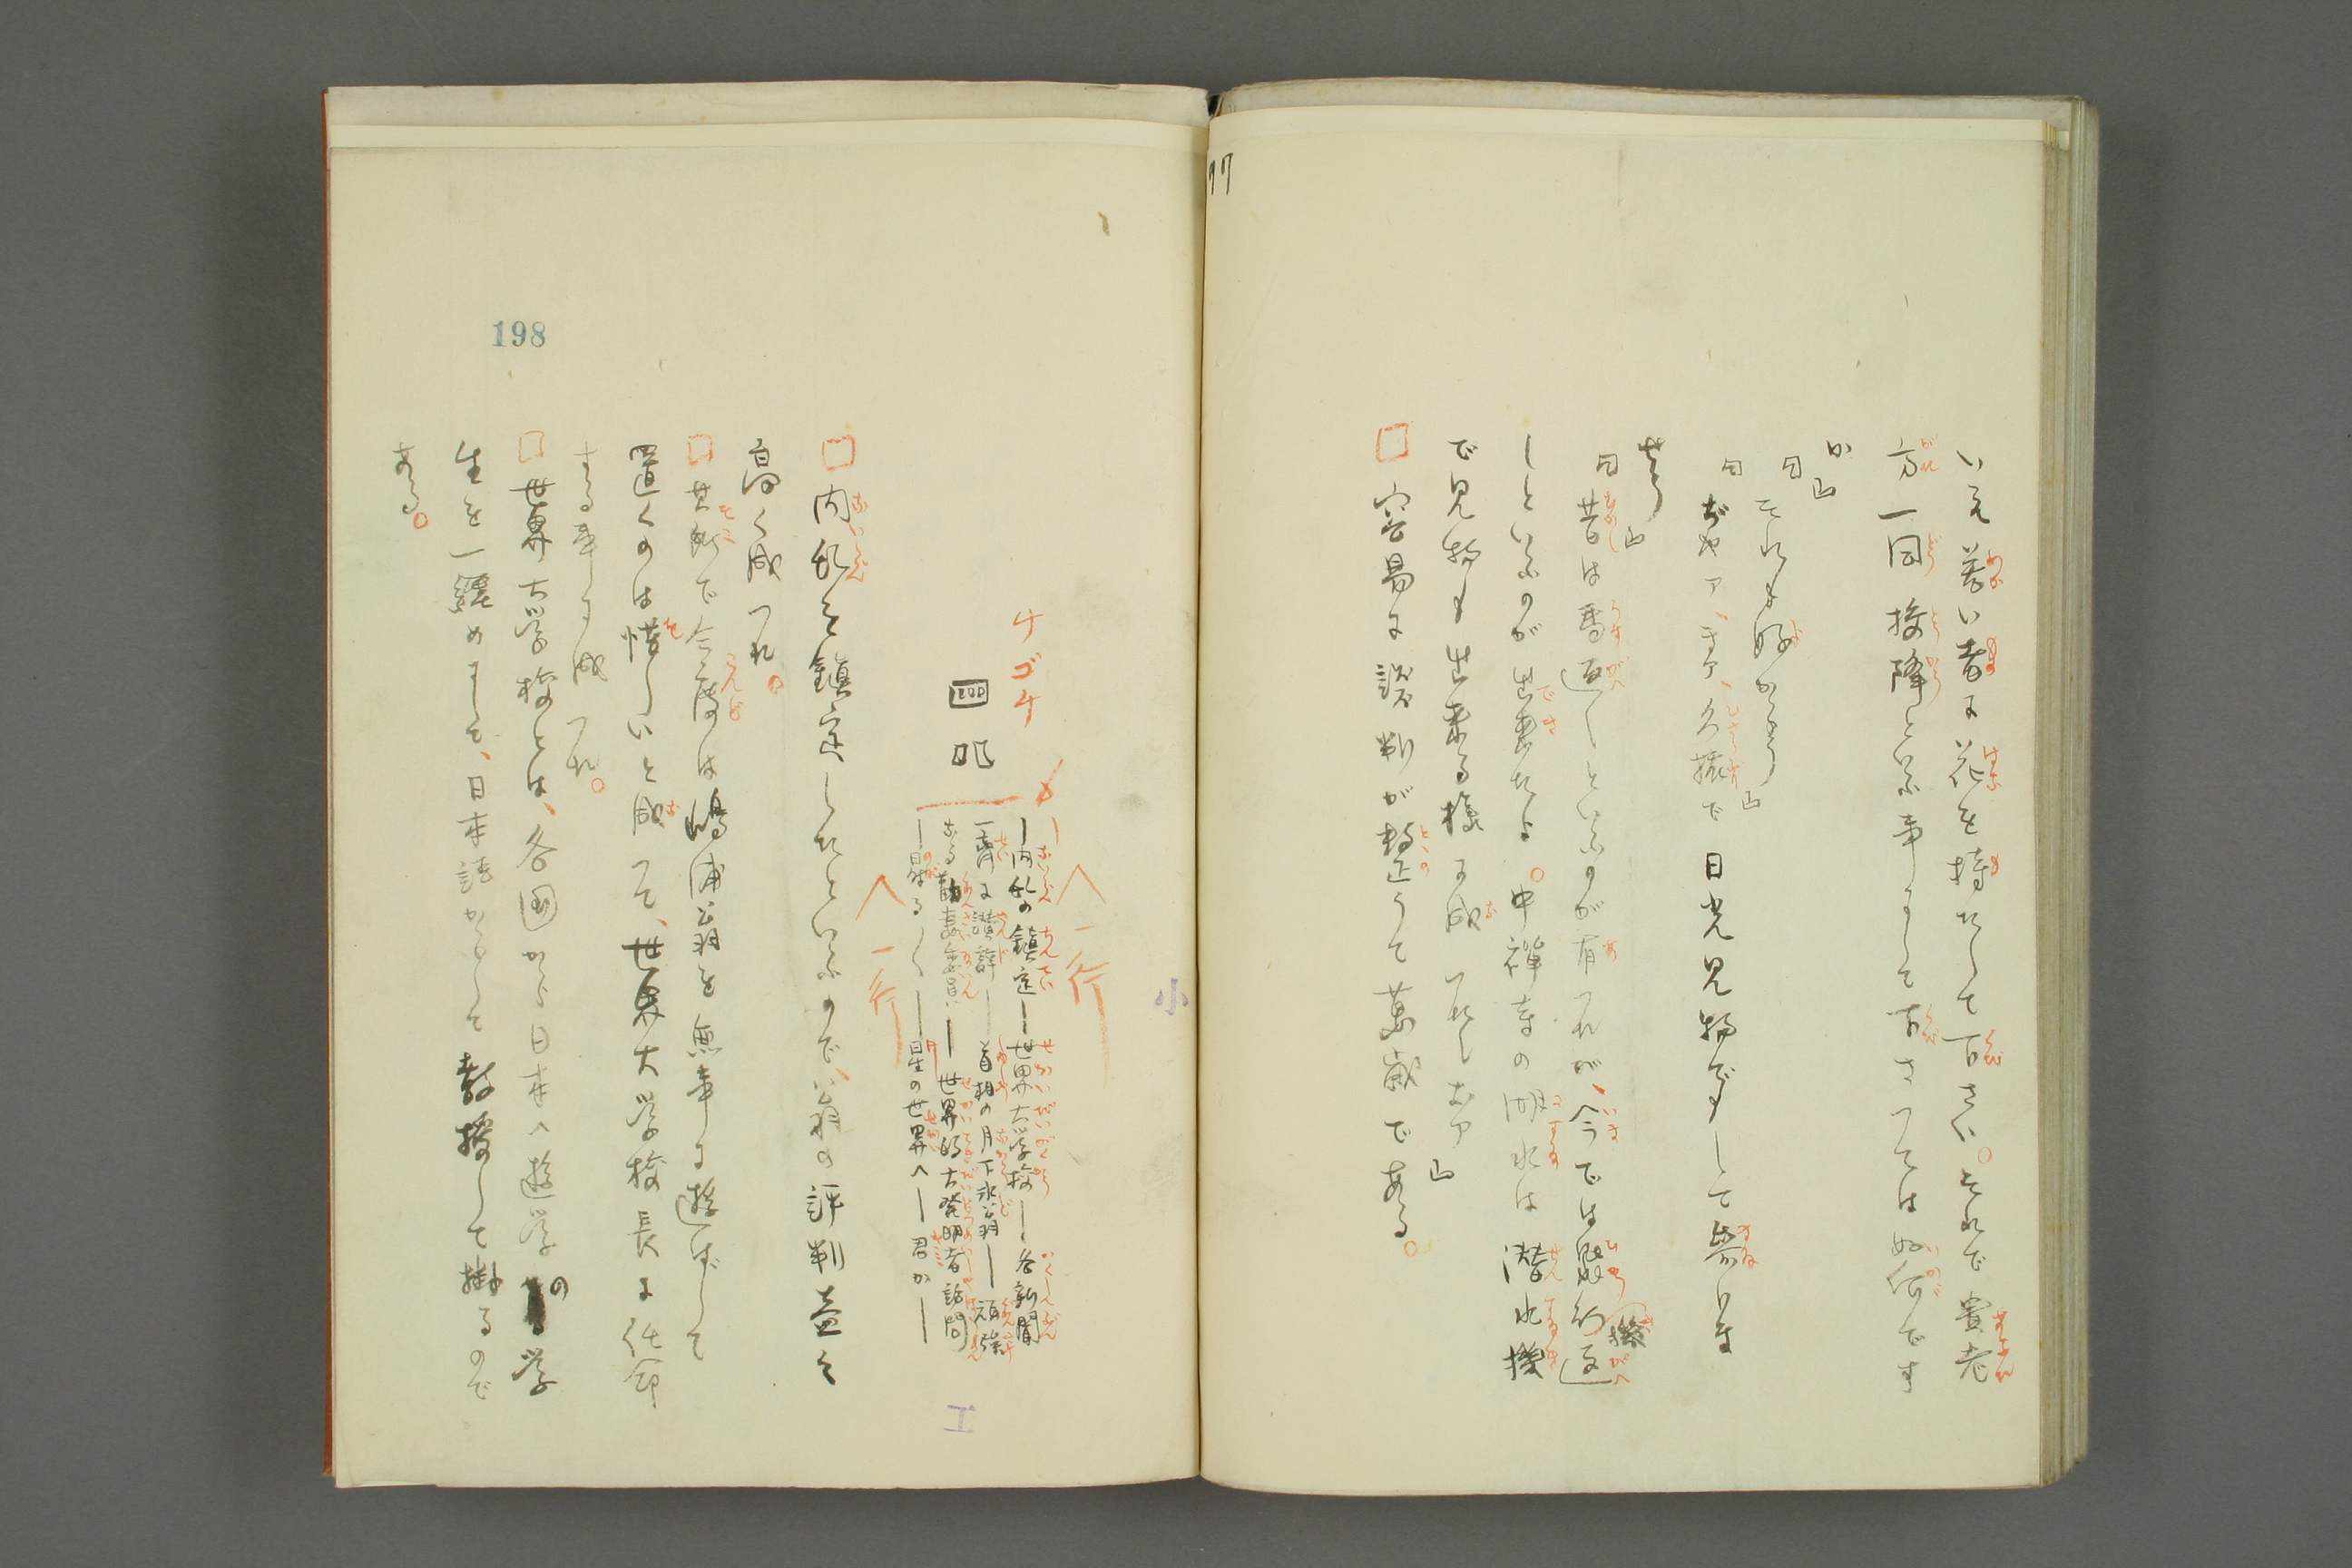 いえ若い者に花を持たして下さい。それで貴老
方一同投降といふ事にして下さつては如何です
か」
「それも好からう」
「ぢやア、まア、久振で日光見物でもして帰りま
せう」
「昔は馬返しといふのが有つたが、今では飛行機返
しといふのが出来たよ。中禅寺の湖水は潜水機
で見物も出来る様に成つたしなア」
容易に談判が整ふて萬歳である。
77
ケゴケ
四九
―内乱の鎮定―世界大学校―各新聞
一斉に讃辞―首相の月下永翁―頑強
なる勧喜委員―世界的大発明者訪問
―昇る〳〵―星の世界へ―君か―
一行
一行
小
エ
内乱を鎮定したといふので、翁の評判益々
高く成つた。
其所で今度は嶋浦翁を無事に遊ばして
置くのは惜しいと成つて、世界大学校長に任命
する事に成つた。
世界大学校とは、各国から日本へ遊学の学
生を一纏めにして、日本語からして教授して掛るので
ある。
198